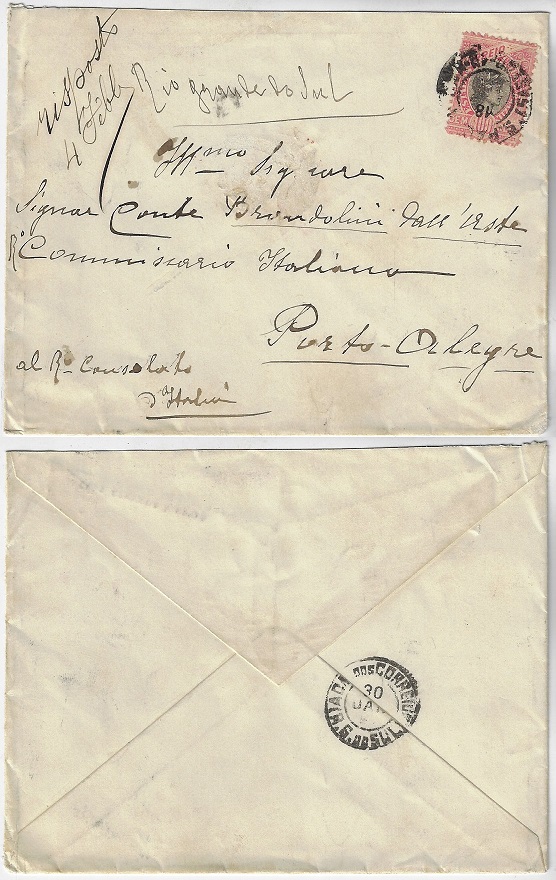 risposto
4 Febb
Rio grande do Sul
Ill.mo Signore
Signor Conte Brandolini dall Aste
R° Commissario Italiano
Porto-Alegre
al R. Consolato
d'Italia
100
18
DOS CORREIOS
30
JAN
R.G. DO SUL